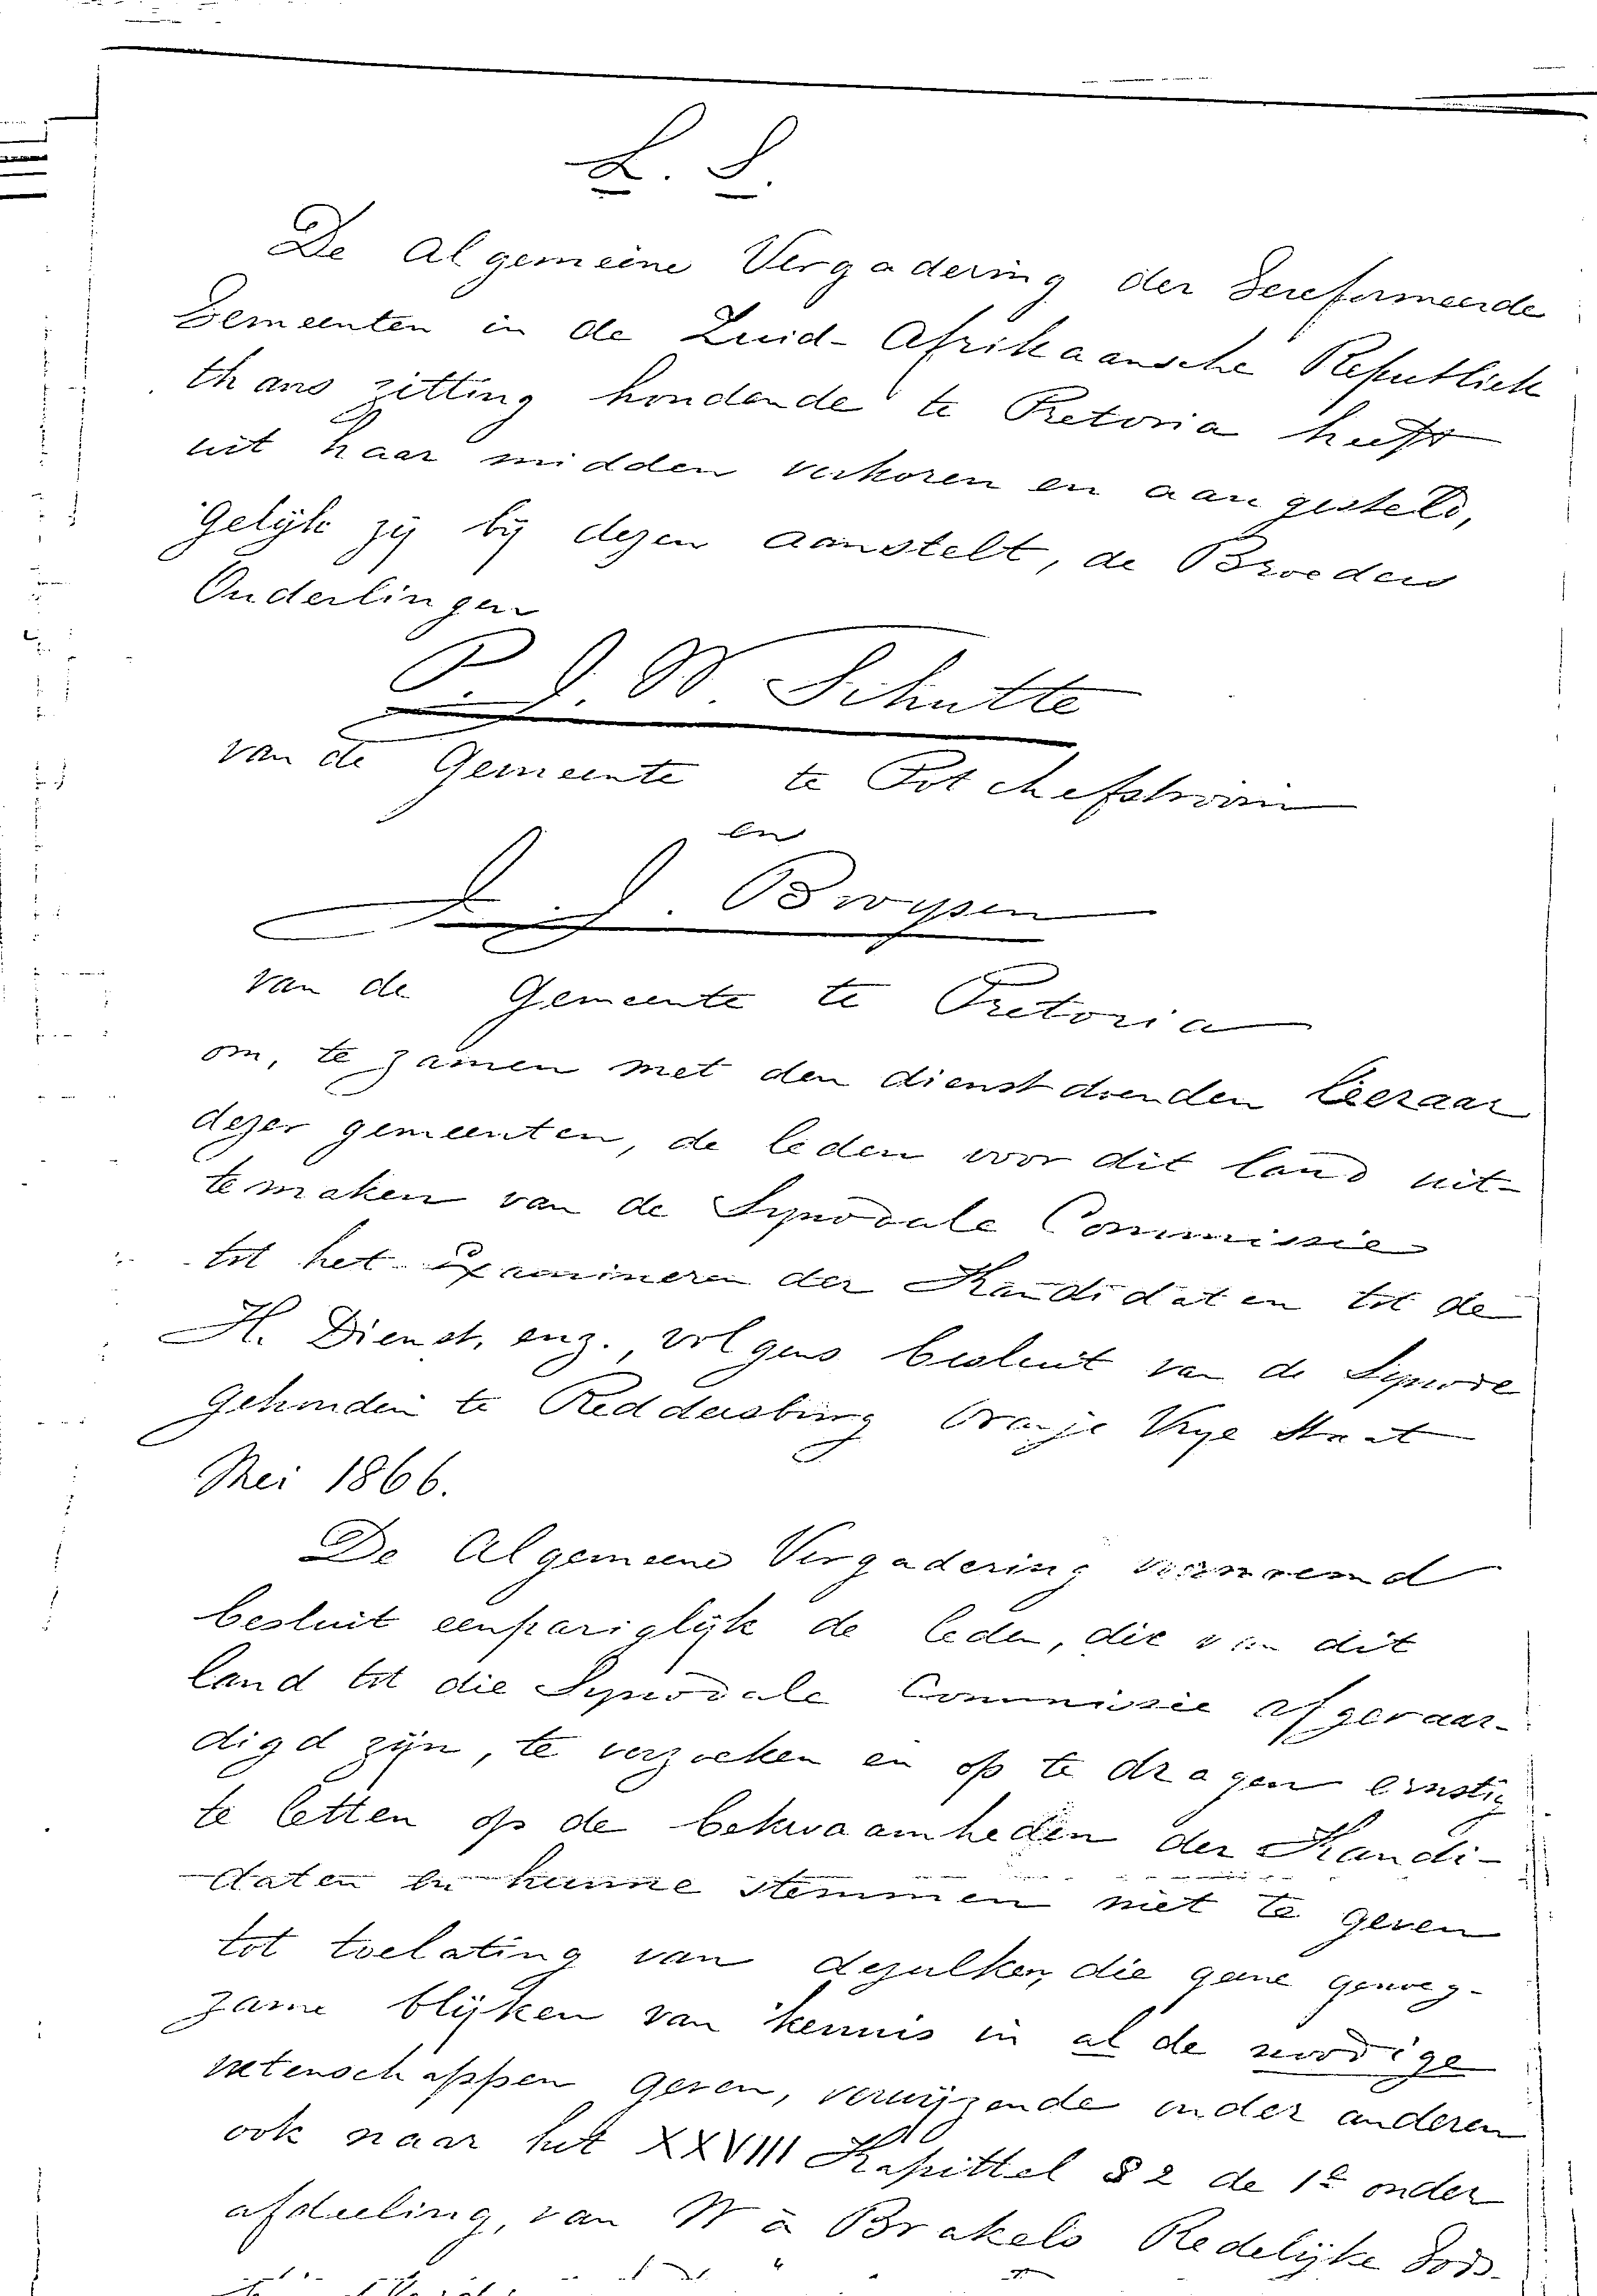 L. S.
De Algemeene Vergadering der Gereformeerde
Gemeenten in de Zuid-Afrikaansche Republiek
thans zitting houdende te Pretoria heeft
uit haar midden verkoren en aangesteld,
Gelijk zij bij dezen aanstelt, de Broeders
Ouderlingen
P. J. W. Schutte
van de Gemeente te Potchefstroom
en
J. J. Booysen
van de Gemeente te Pretoria
om, te zamen met den dienstdoenden leeraar
dezer gemeenten, de leden voor dit land uit-
temaken van de Synodale Commissie
tot het Examineren der Kandidaten tot de
H. Dienst, enz., volgens besluit van de Synode
Gehouden te Reddersburg Oranje Vrye Staat
Mei 1866.
De Algemeene Vergadering voornoemd
besluit eenpariglijk de leden, die van dit
land tot die Synodale Commissie afgevaar-
digd zijn, te verzoeken en op te dragen ernstig
te letten op de bekwaamheden der Kandi-
daten en hunne stemmen niet te geven
tot toelating van dezulken, die geene genoeg-
zame blijken van kennis in al de noodige
wetenschappen geven, verwijzende onder anderen
ook naar het XXVIII Kapittel § 2 de 1e onder
afdeeling, van W à Brakels Redelijke Gods-